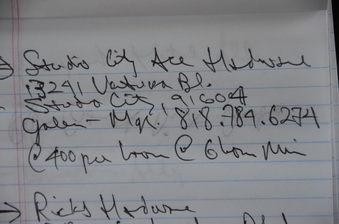 → Studio City Ace Hardware
13241 Ventura Bl.
Studio City, 91604
Galen - Mgr. 818.784.6274
@ 400 per hour @ 6 hour min
→ Ricks Hardware